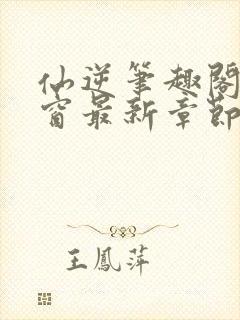 仙逆笔趣阁
窗最新章节
王鳳萍